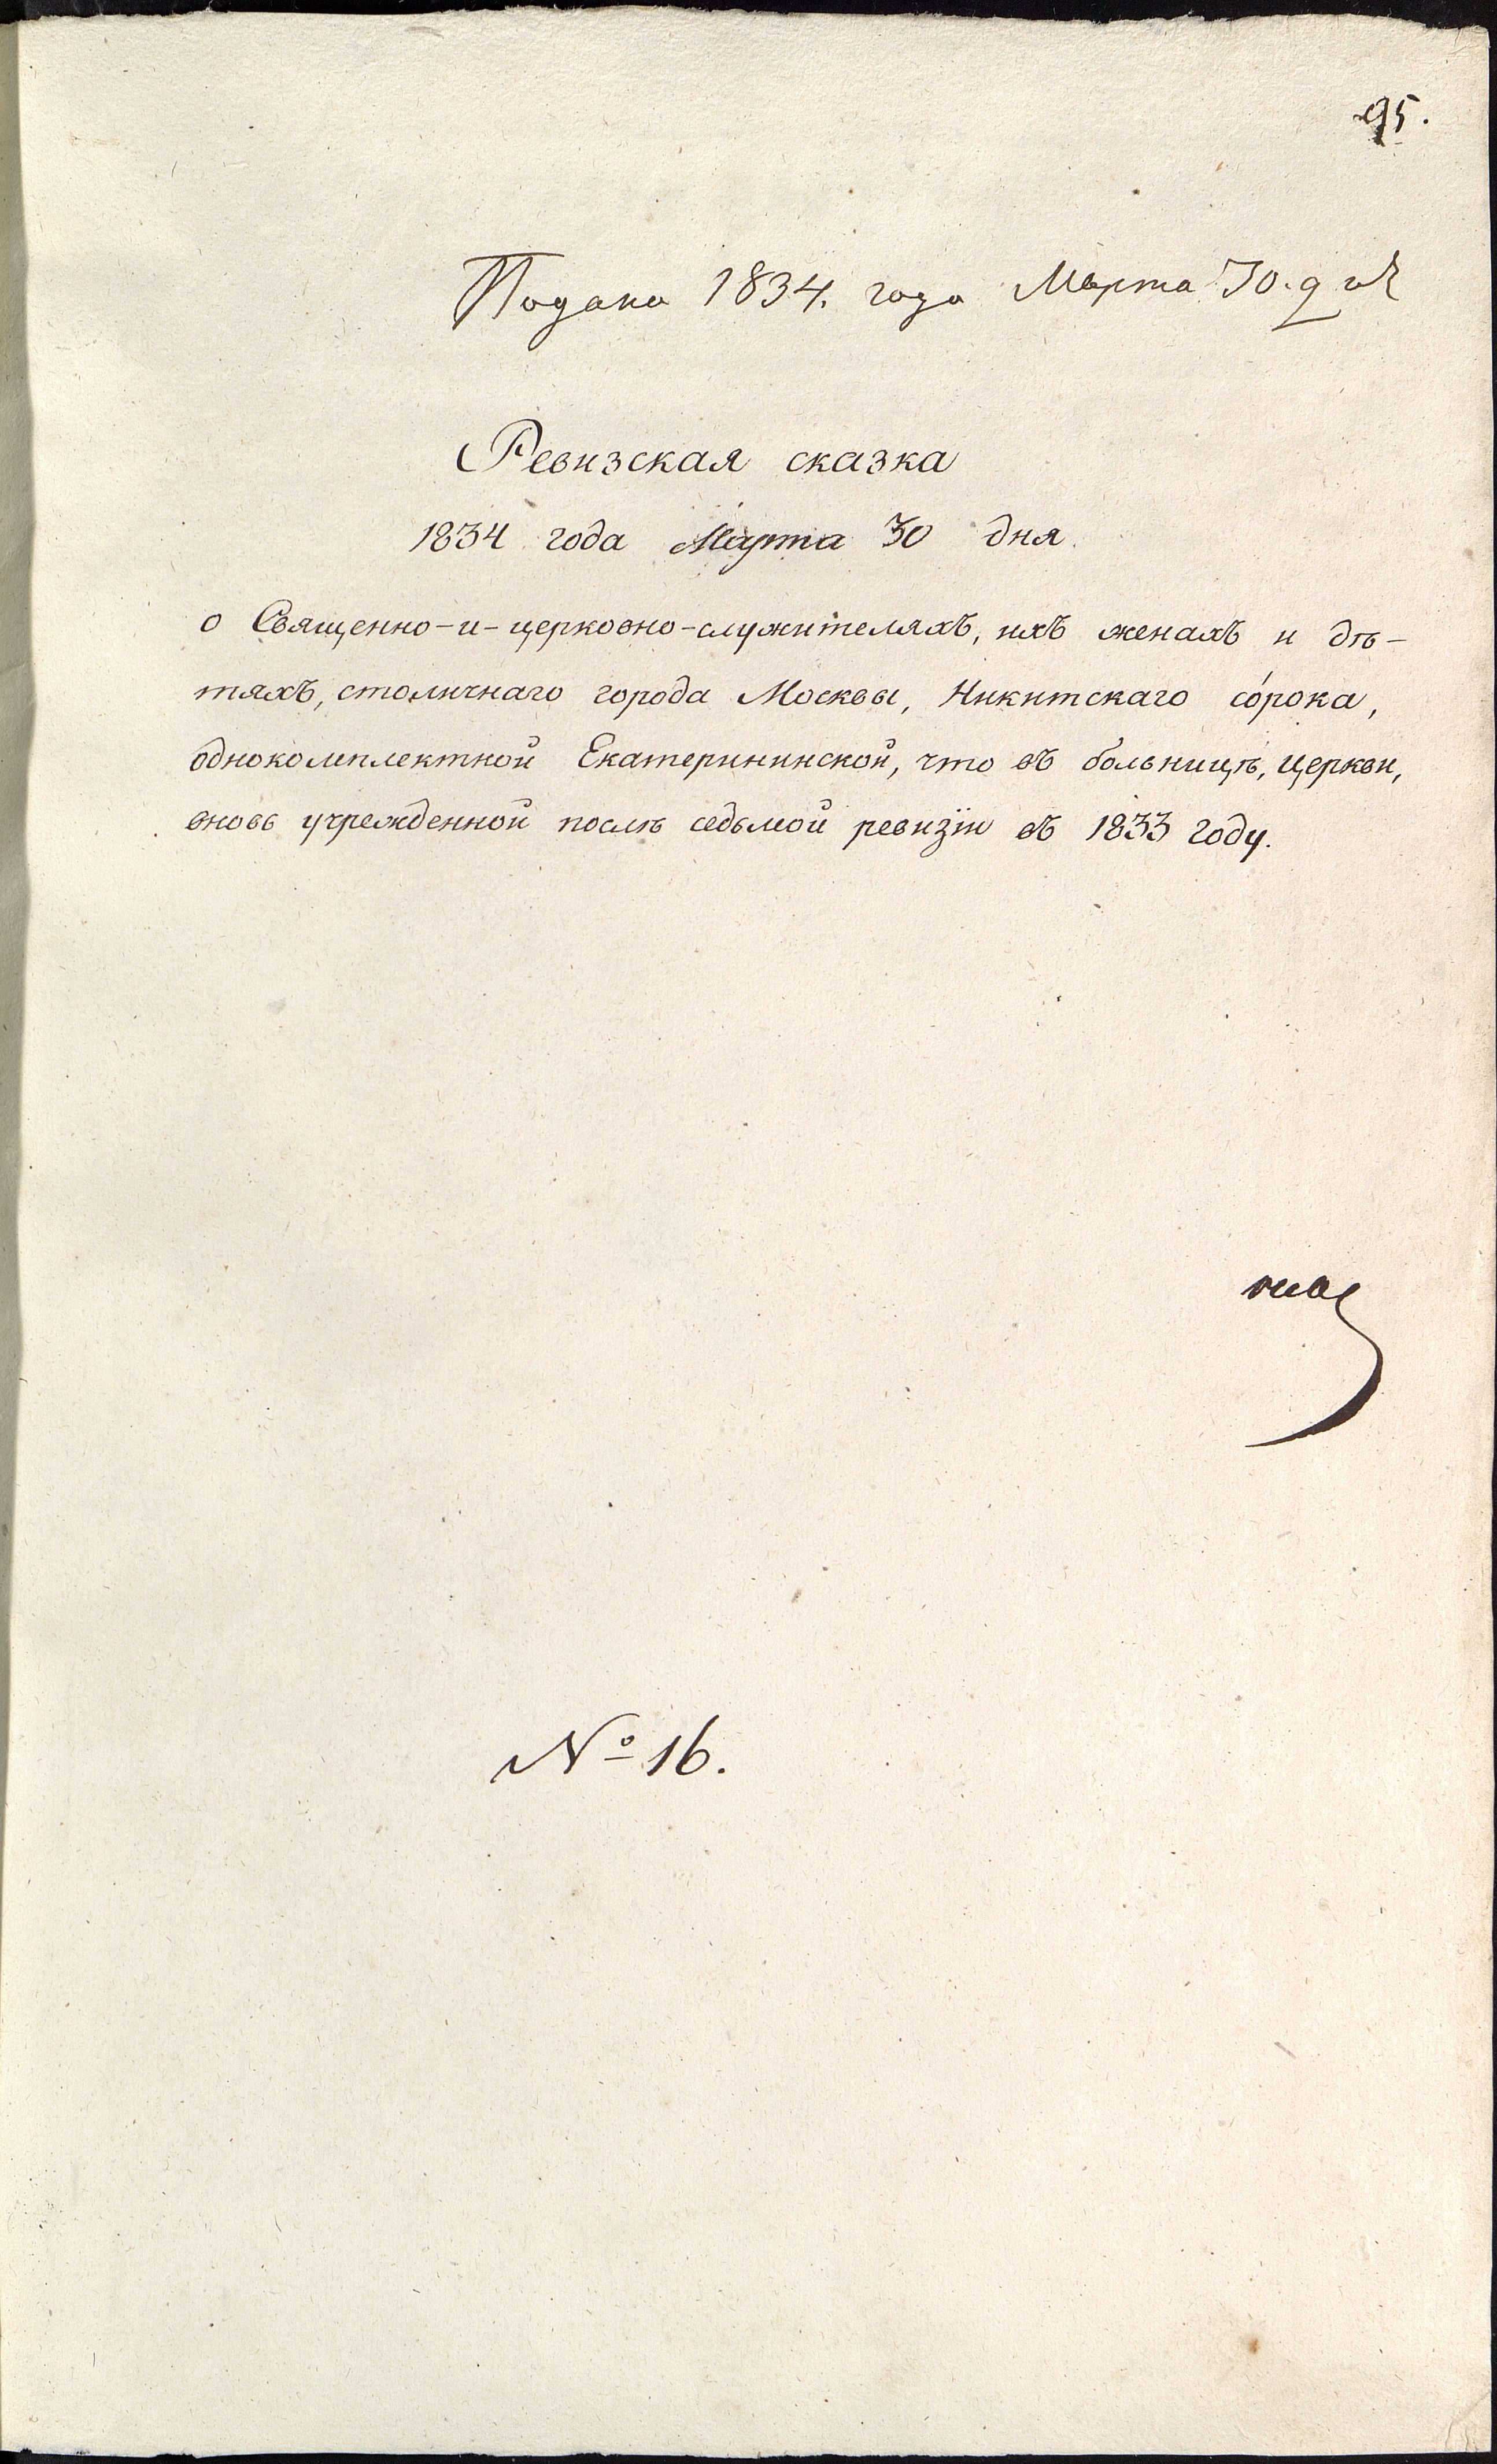 95.
Подана 1834. года Марта 30. дня
Ревизская сказка
1834 года Марта 30 дня
о Священно-и-церковно-служителяхъ, ихъ женахъ и дѣ-
тяхъ, столичнаго города Москвы, Никитскаго со́рока,
однокомплектной Екатерининской, что въ больницѣ, церкви,
вновь учрежденной послѣ седьмой ревизіи въ 1833 году.
№ 16.